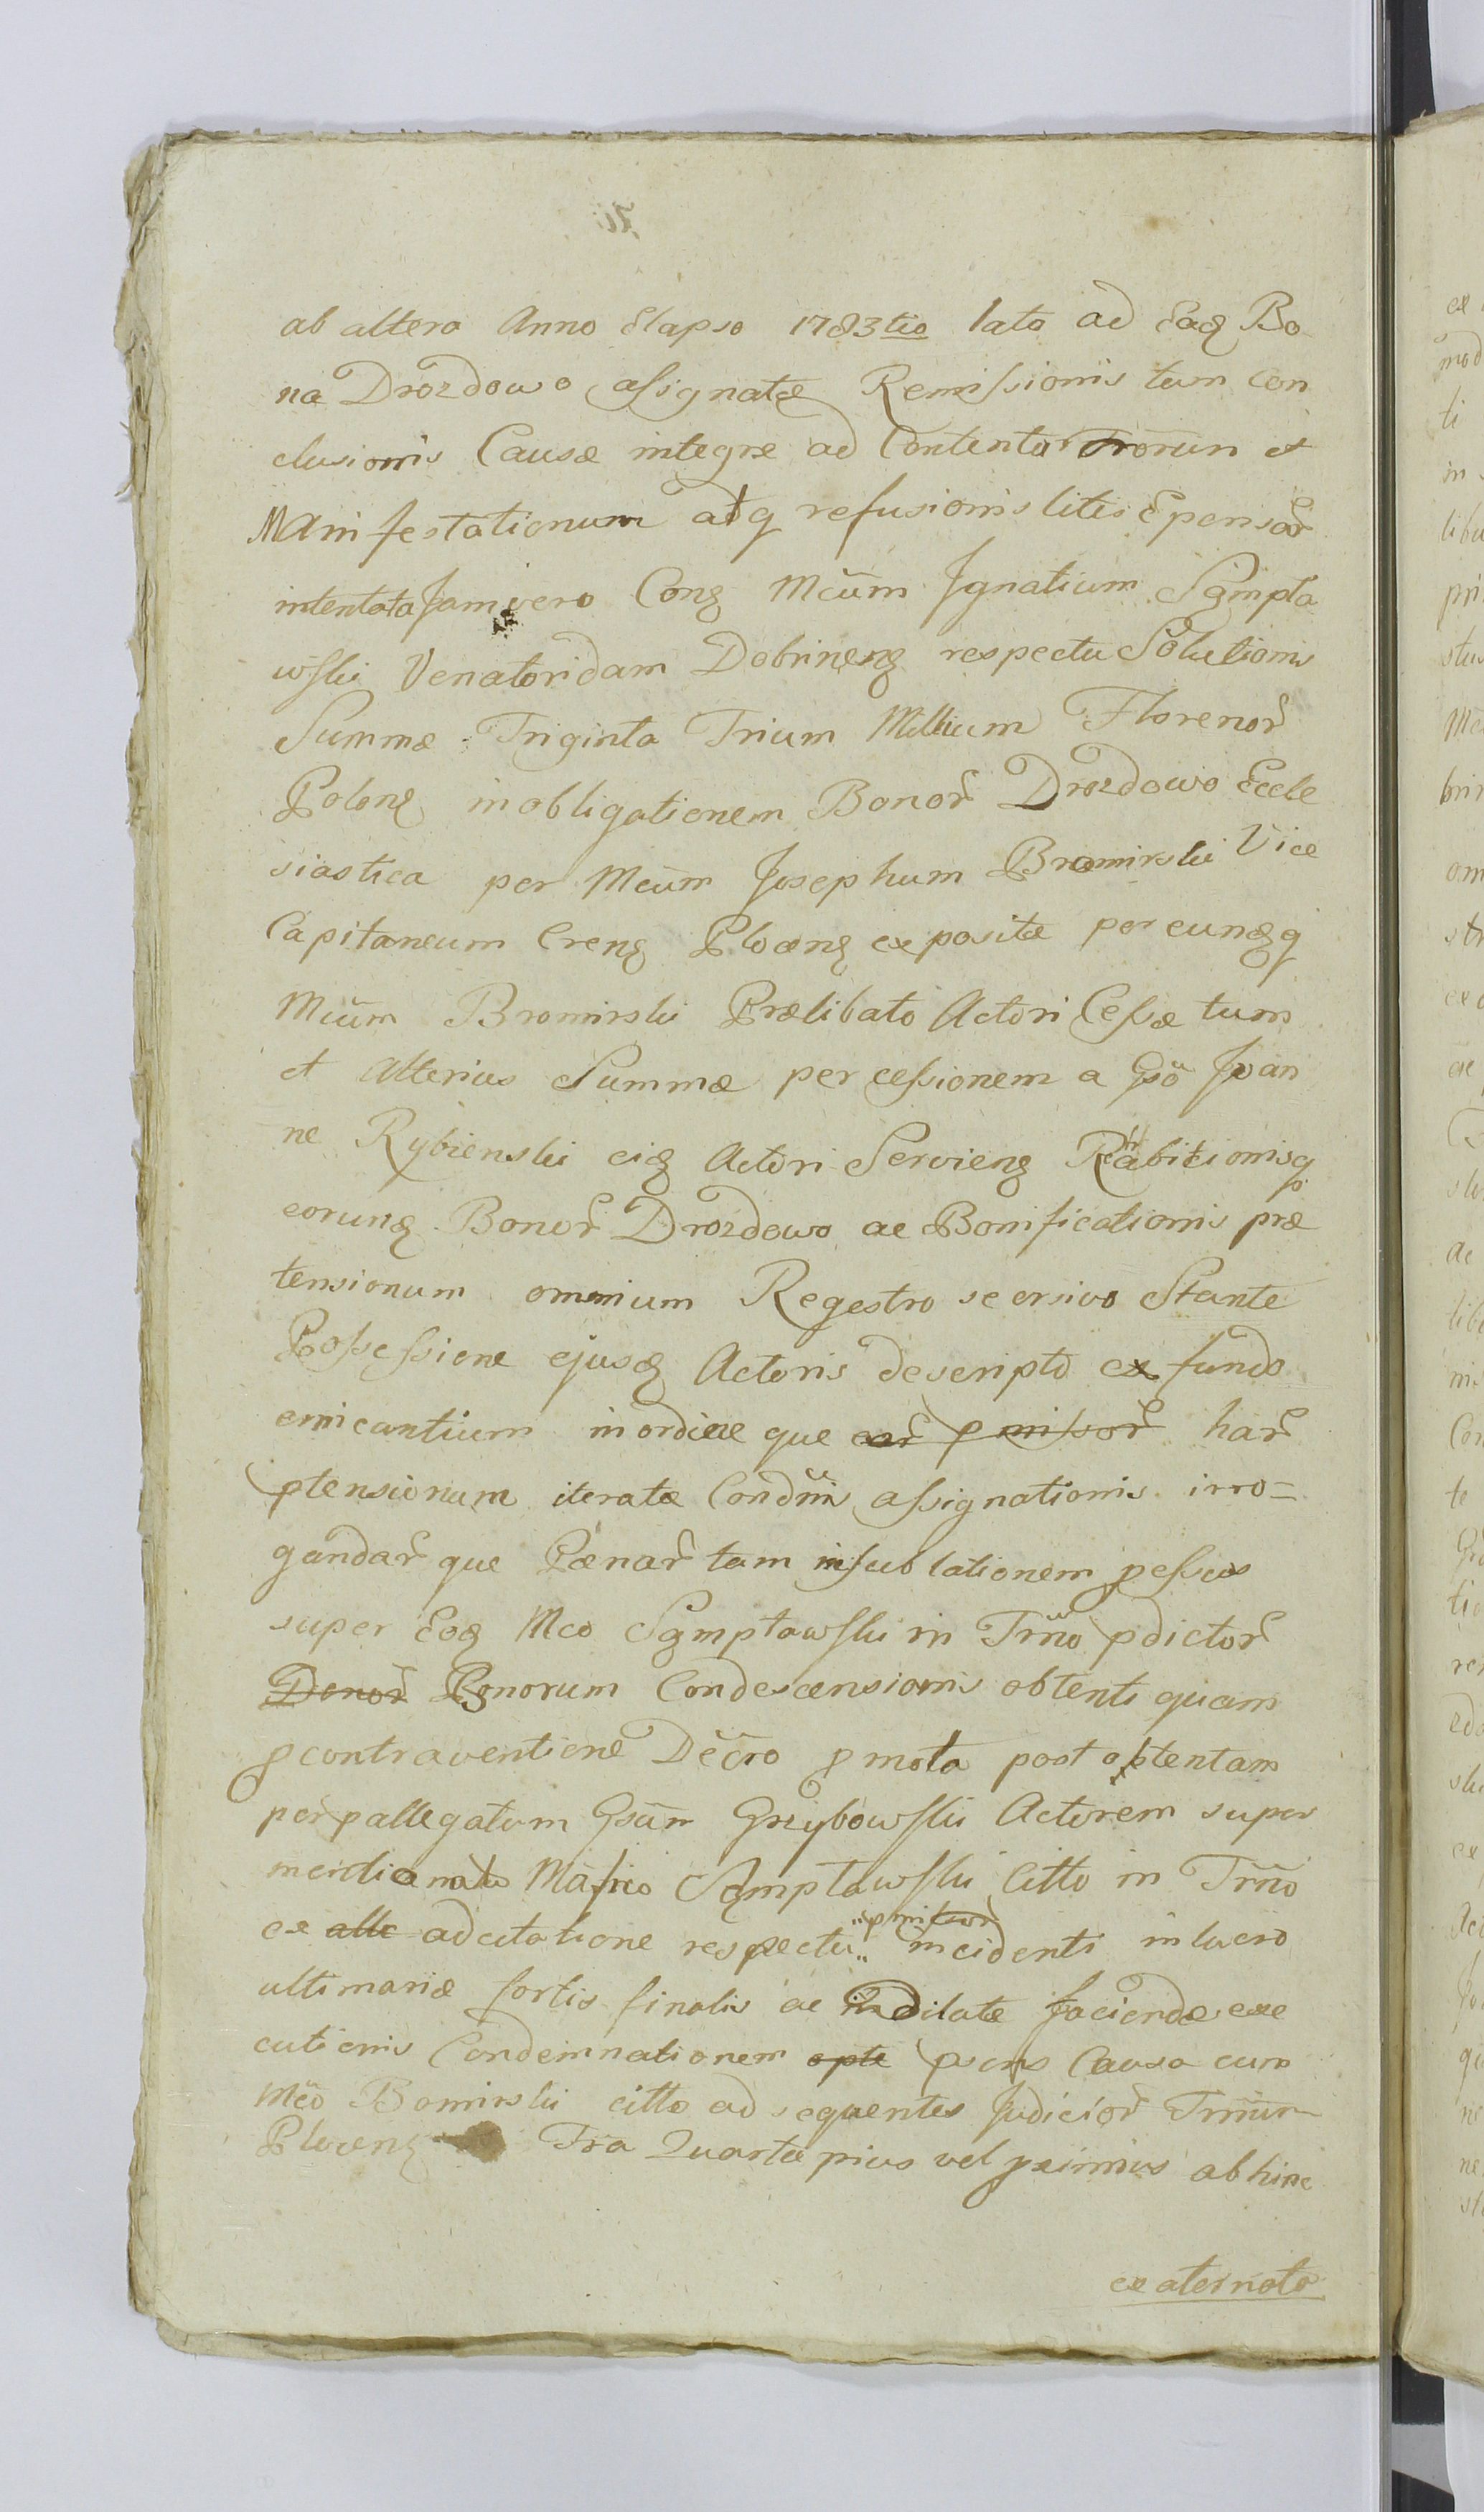 ab altera Anno Elapso 1783tio lata ad Eaq Bo
na Drozdowo assignatæ Remissionis tum con
clusionis Causæ integre ad Contenta Trorum et
Manifestationum adq refusionis litis Expensar̃
intentata Jam vero Conq Mcum Ignatium Sempła
wski Venatoridam Dobrinenq respectu Solutionis
Summæ Triginta Trium Millium Florenor̃
Polonq in obligationem Bonor̃ Drozdowo Eccle
siastica per Mcum Josephum Bromirski Vice
Capitaneum Crenq Plocenq expositæ per eunqq
Mcum Bromirski Prælibato Actori Cessæ tum
et alterius Summæ per cessionem a Gso Joan
ne Rybienski eiq Actori Servienq bitionisq
eorunq Bonor̃ Drozdowo ac Bonificationis præ
tensionum omnium Regestro seorsivo Stante
Possessione ejusq Actoris descripto ex fundo
emicantium in ordine que ear̃ pmissor̃ har̃
ptensionum iteratæ Condnis assignationis irro=
gandar̃ que Pænar̃ tam in sublationem pessus
super Eoq Mco Sempławski in Trño pdictor̃
Bonor̃ Bonorum Condescensionis obtenti quam
p contraventione Decro p mota post obtentam
per pallegatum Gsum Grzybowski Actorem super
mentionato Mafico Sempławski Citto in Trño
ex alle adcitatione respectu pmissor̃ incidenti in lucro
ultimariæ fortis finalis ac indilatæ faciendæ exe
cutionis Condemnationem opte psens Causa cum
Mco Bomirski citto ad sequentes Judicior̃ Trñum
Plocenq Fra Quarta pius vel pximius abhinc
ex aternato